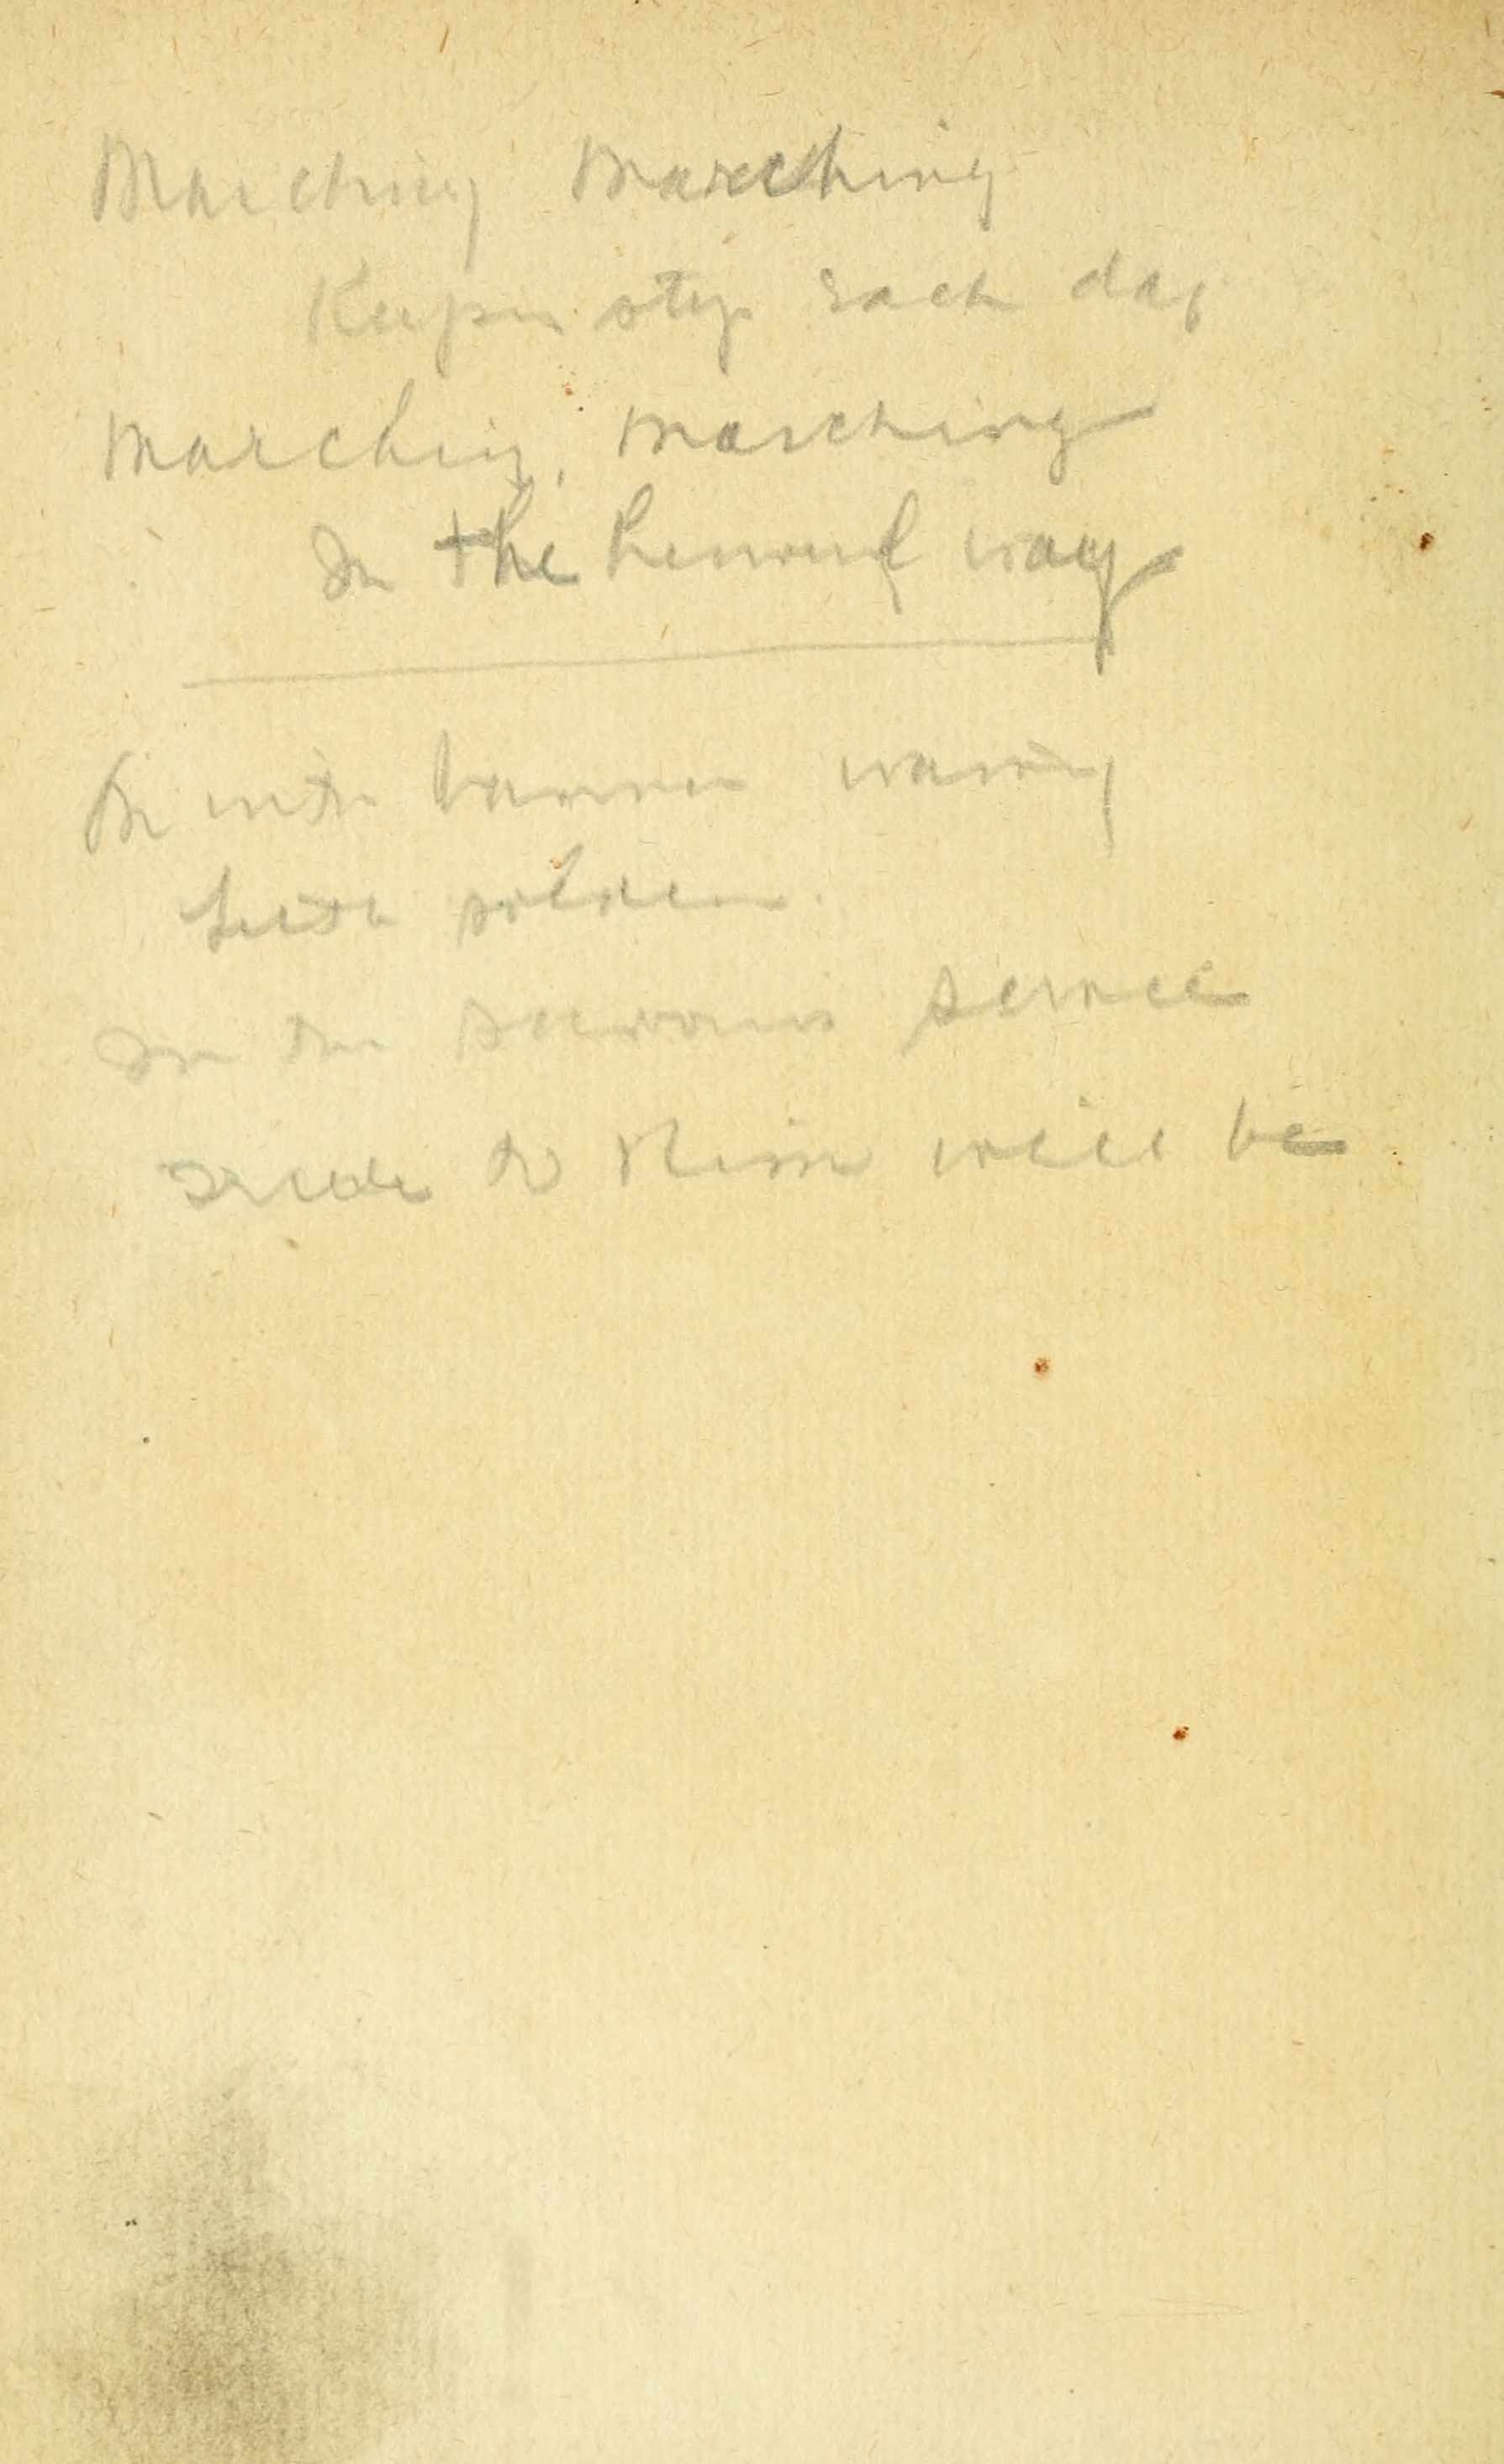 Marching Marching
Keepin step each day
Marching, marching
In the heavenly way
On with banner waving
Little soldiers
In the saviours service
to Him will be